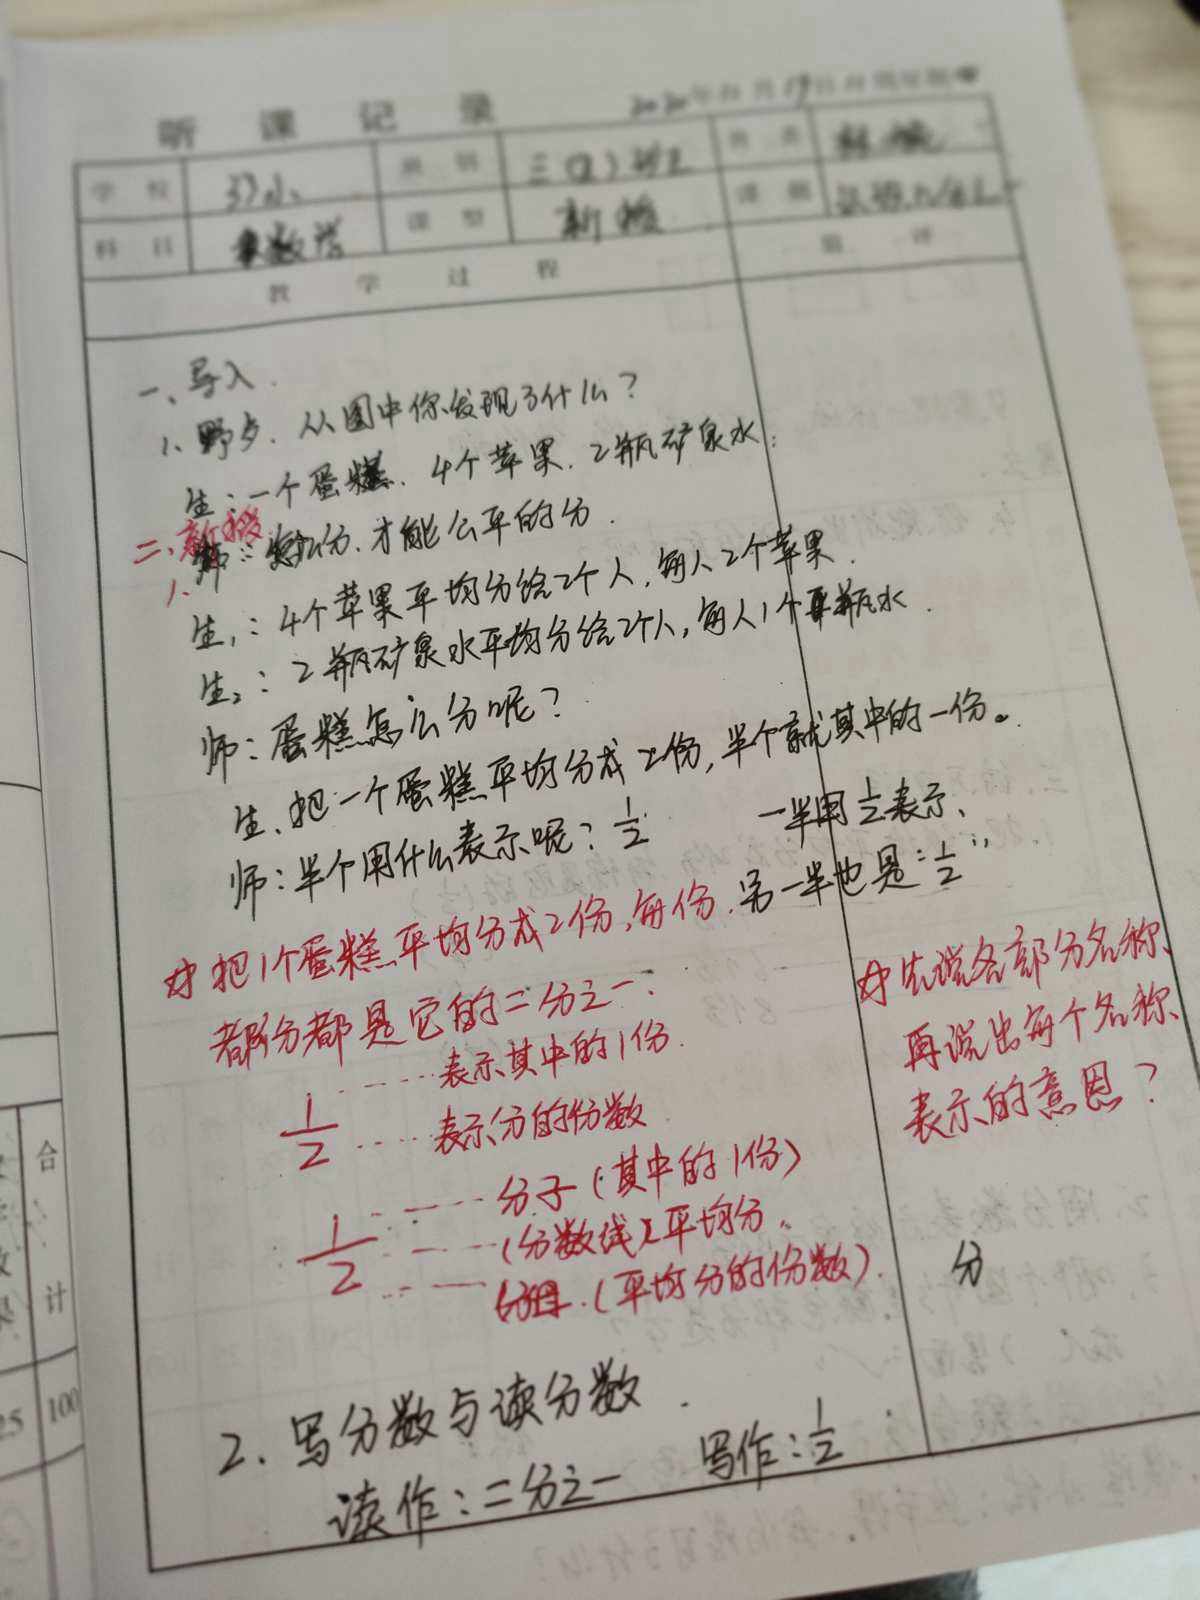 听课记录
2020年 月19日
学校 班级 三(2)班
科目 数学 课型 新授 课题
教学过程
一、导入.
1、野夕. 从图中你发现了什么?
生:一个蛋糕、4个苹果、2瓶矿泉水.
二、新授
1、师:怎么分.才能公平的分.
生1:4个苹果平均分给2个人,每人2个苹果.
生2:2瓶矿泉水平均分给2个人,每人1个瓶水.
师:蛋糕怎么分呢?
生、把一个蛋糕平均分成2份,半个就其中的一份。
师:半个用什么表示呢?1/2 一半用1/2表示、
另一半也是“1/2”
把1个蛋糕平均分成2份,每份.
都分都是它的二分之一.
1/2 表示其中的1份.
表示分的份数
1/2 分子(其中的1份)
(分数线)平均分.
分母.(平均分的份数).
先说各部分名称、
再说出每个名称、
表示的意思?
分
2、写分数与读分数.
读作:二分之一 写作:1/2
合计
25 100